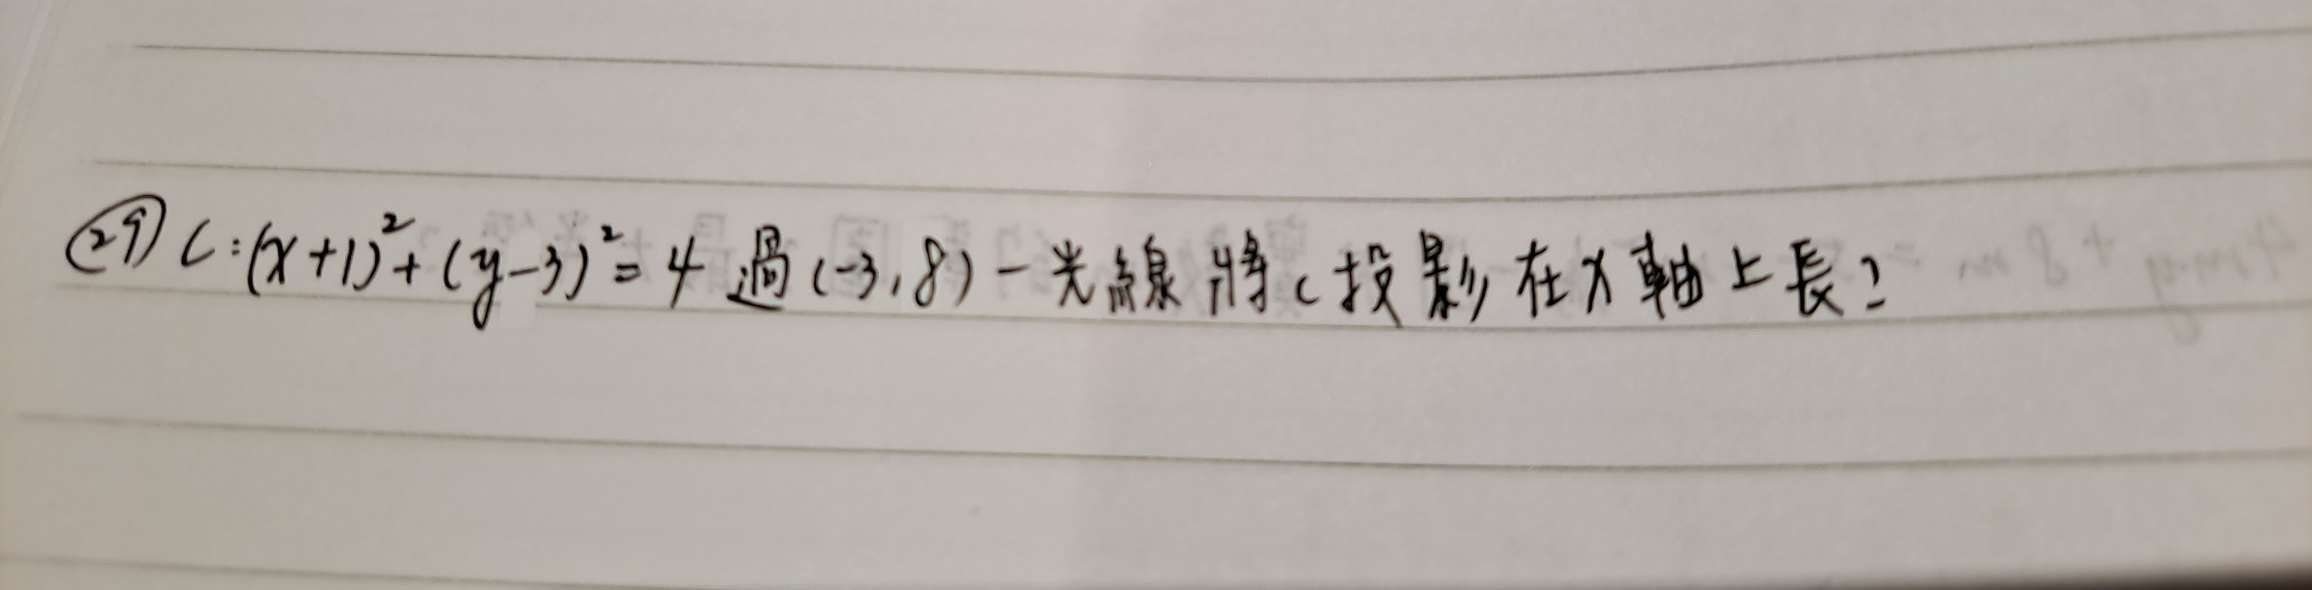 ㉙ C:(x+1)²+(y-3)²=4 過(-3,8)一光線將C投影在x軸上長?